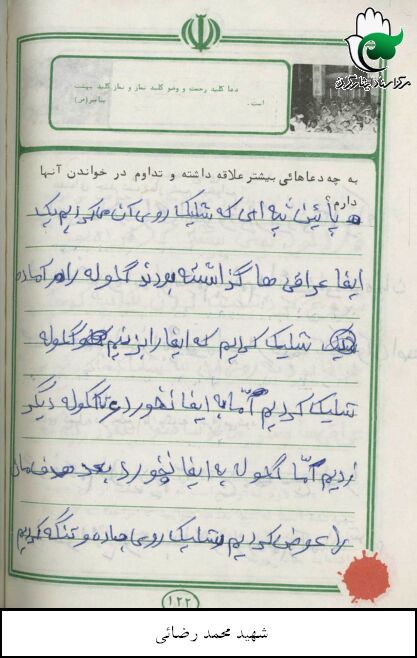 مرکز اسناد ایثارگران
دعا کلید رحمت و وضو کلید نماز و نماز کلید بهشت
است.
پیامبر(ص)
به چه دعاهائی بیشتر علاقه داشته و تداوم در خواندن آنها
دارم؟
پائین تپه ای که شلیک روی آن می کردیم یک
ایفا عراقی ها گذاشته بودند گلوله را آماده
شلیک کردیم که ایفا را بزنیم گلوله
شلیک کردیم امّا به ایفا نخورد گلوله دیگر
زدیم امّا گلوله به ایفا نخورد بعد هدفمان
را عوض کردیم و شلیک روی جاده و تنگه کردیم
۱۲۲
شهید محمد رضائی